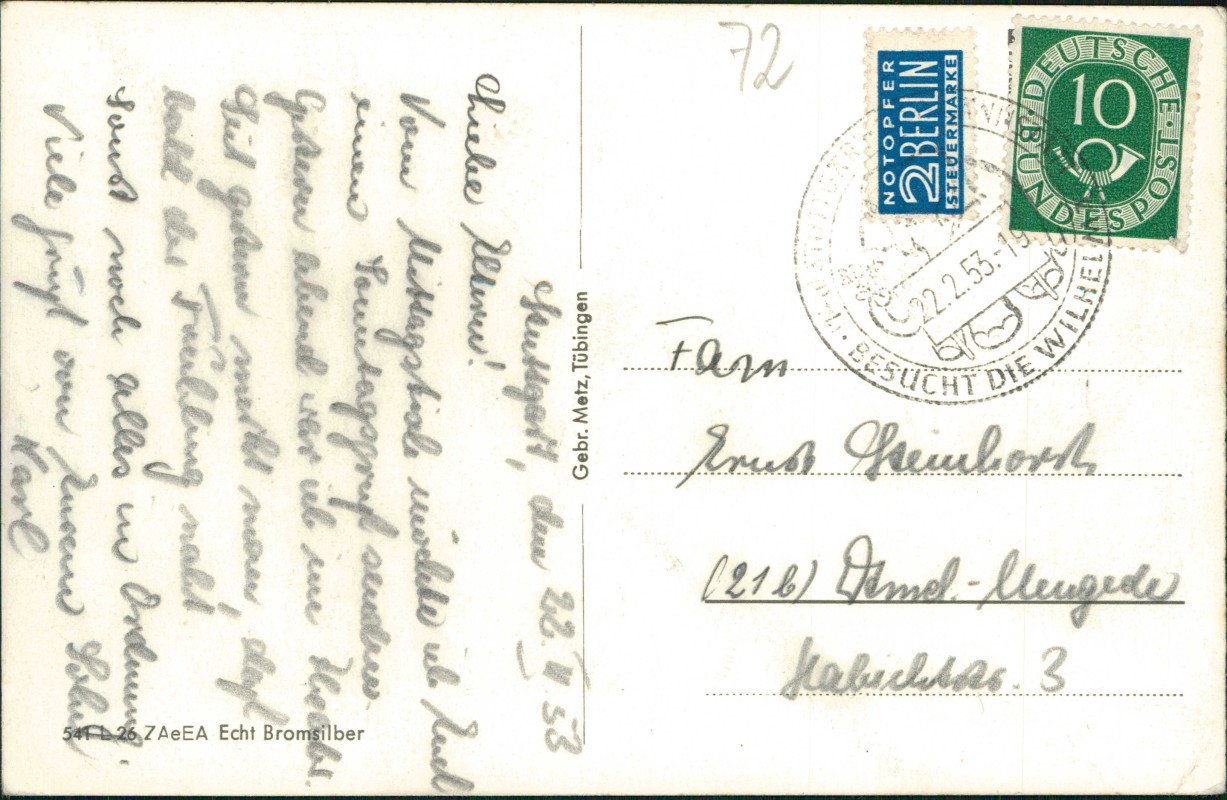 Stuttgart, den 22.II.53
Liebe Eltern!
Vom Mittagstisch möchte ich Euch
einen Sonntagsgruß senden.
Gestern abend war ich im Theater.
Seit gestern merkt man, daß
bald der Frühling naht!
Sonst noch alles in Ordnung.
Viele Grüße von Eurem Sohn
Karl
541 L 26 ZAeEA Echt Bromsilber
Gebr. Metz, Tübingen
72
NOTOPFER
2 BERLIN
STEUERMARKE
DEUTSCHE BUNDESPOST
10
22.2.53.-19
BESUCHT DIE WILHELMA
Fam
Ernst Steinhorst
(21b) Dtmd.-Mengede
Habichtstr. 3